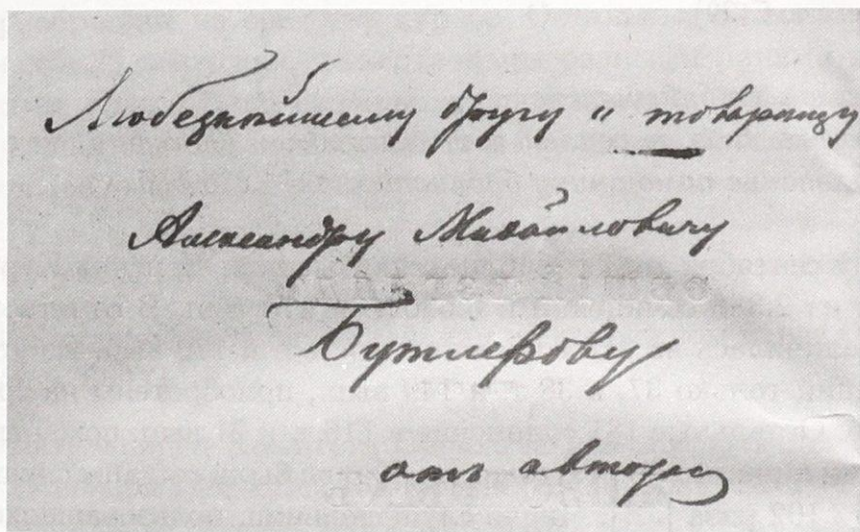 Любезнѣйшему другу и товарищу
Александру Михайловичу
Бутлерову
отъ автора